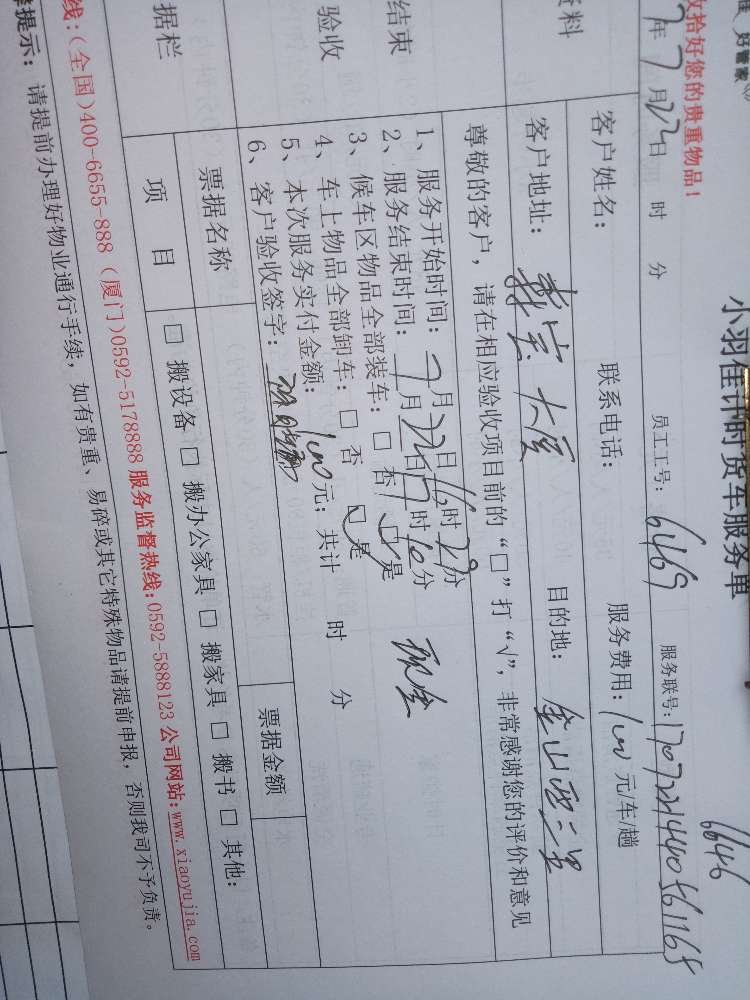 好管家
小羽佳计时货车服务单
6646
收拾好您的贵重物品！
7年7月22日 时 分 员工工号：6469 服务联号：1707221440561168
客户姓名： 联系电话： 服务费用：100元/车/趟
客户地址： 大厦 目的地：金山西二里
资料
尊敬的客户，请在相应验收项目前的“□”打“√”，非常感谢您的评价和意见
结束
验收
1、服务开始时间：7月22日16时29分
2、服务结束时间：7月22日17时10分 现金
3、候车区物品全部装车：□否 □是
4、车上物品全部卸车：□否 □是
5、本次服务实付金额：100元；共计 时 分
6、客户验收签字：
据栏
票据名称 票据金额
项 目 □搬设备□搬办公家具□搬家具□搬书□其他：
线：(全国)400-6655-888（厦门)0592-5178888服务监督热线:0592-5888123公司网站:www.xiaoyujia.com
提示：请提前办理好物业通行手续，如有贵重、易碎或其它特殊物品请提前申报，否则我司不予负责。